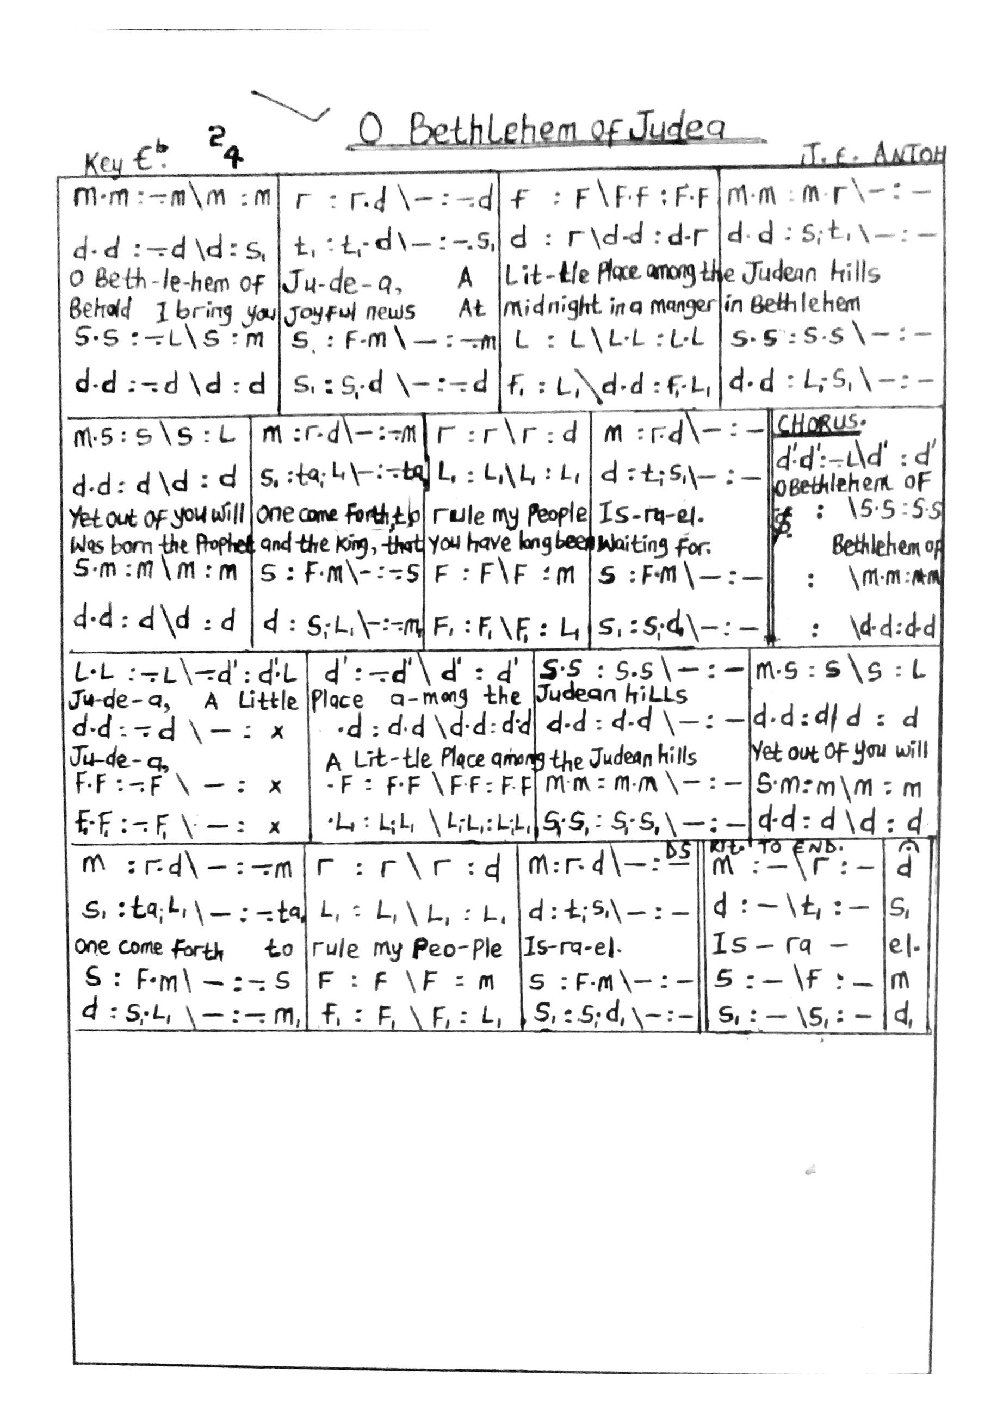 O Bethlehem of Judea
Key Eb. 2/4
J. E. ANTOH
m.m :-.m\m :m | r :r.d\-:-.d | f :F\F.f:F.F | m.m:m.r\-:-
d.d :-.d\d:s, | t,:t,.d\-:-.s, | d :r\d.d:d.r | d.d:s,.t,\-:-
O Beth-le-hem of Ju-de-a, A Lit-tle Place among the Judean hills
Behold I bring you joyful news At midnight in a manger in Bethlehem
S.S :-.L\S :m | S :F.m\-:-.m | L :L\L.L:L.L | S.S:S.S\-:-
d.d :-.d\d:d | S,:S,.d\-:-.d | f, :L,\d.d:f,.L, | d.d:L,.S,\-:-
m.s:s\s:L | m:r.d\-:-.m | r :r\r:d | m :r.d\-:- | CHORUS.
d'.d':-.L\d' :d'
d.d:d\d:d | S,:ta,.L,\-:-.ta, | L, :L,\L,:L, | d:t,.s,\-:-
O Bethlehem OF
Yet out of you will One come forth, to rule my People Is-ra-el.
$. : \S.S:S.S
Was born the Prophet and the King, that you have long been Waiting for. Bethlehem of
S.m:m\m:m | S :F.m\-:-.S | F :F\F :m | S :F.m\-:- | : \m.m:m.m
d.d:d\d:d | d :S,.L,\-:-.m, | F, :F,\F, :L, | S, :S,.d,\-:- | : \d.d:d.d
L.L :-.L\-.d':d'.L | d':-.d'\d':d' | S.S:S.S\-:- | m.s:s\s:L
Ju-de-a, A Little Place a-mong the Judean hiLLS
d.d:-.d\-: x | .d:d.d\d.d:d.d | d.d:d.d\-:- | d.d:d/d:d
Ju-de-a, A Lit-tle Place among the Judean hills Yet out OF you will
F.F:-.F\-: x | .F:F.F\F.F:F.F | m.m:m.m\-:- | S.m:m\m:m
F,.F,:-.F,\-: x | .L,:L,.L,\L,.L,:L,.L, | S,.S,:S,.S,\-:- | d.d:d\d:d
DS RIT. TO END.
m :r.d\-:-.m | r :r\r:d | m:r.d\-:- | m :-\r:- | d
S,:ta,.L,\-:-.ta, | L, :L,\L, :L, | d:t,.s,\-:- | d :-\t,:- | S,
one come forth to rule my Peo-Ple Is-ra-el. Is-ra-el.
S :F.m\-:-.S | F :F\F :m | S :F.m\-:- | S :-\f :- | m
d :S,.L,\-:-.m, | f, :F,\F, :L, | S,:S,.d,\-:- | S, :-\S, :- | d,